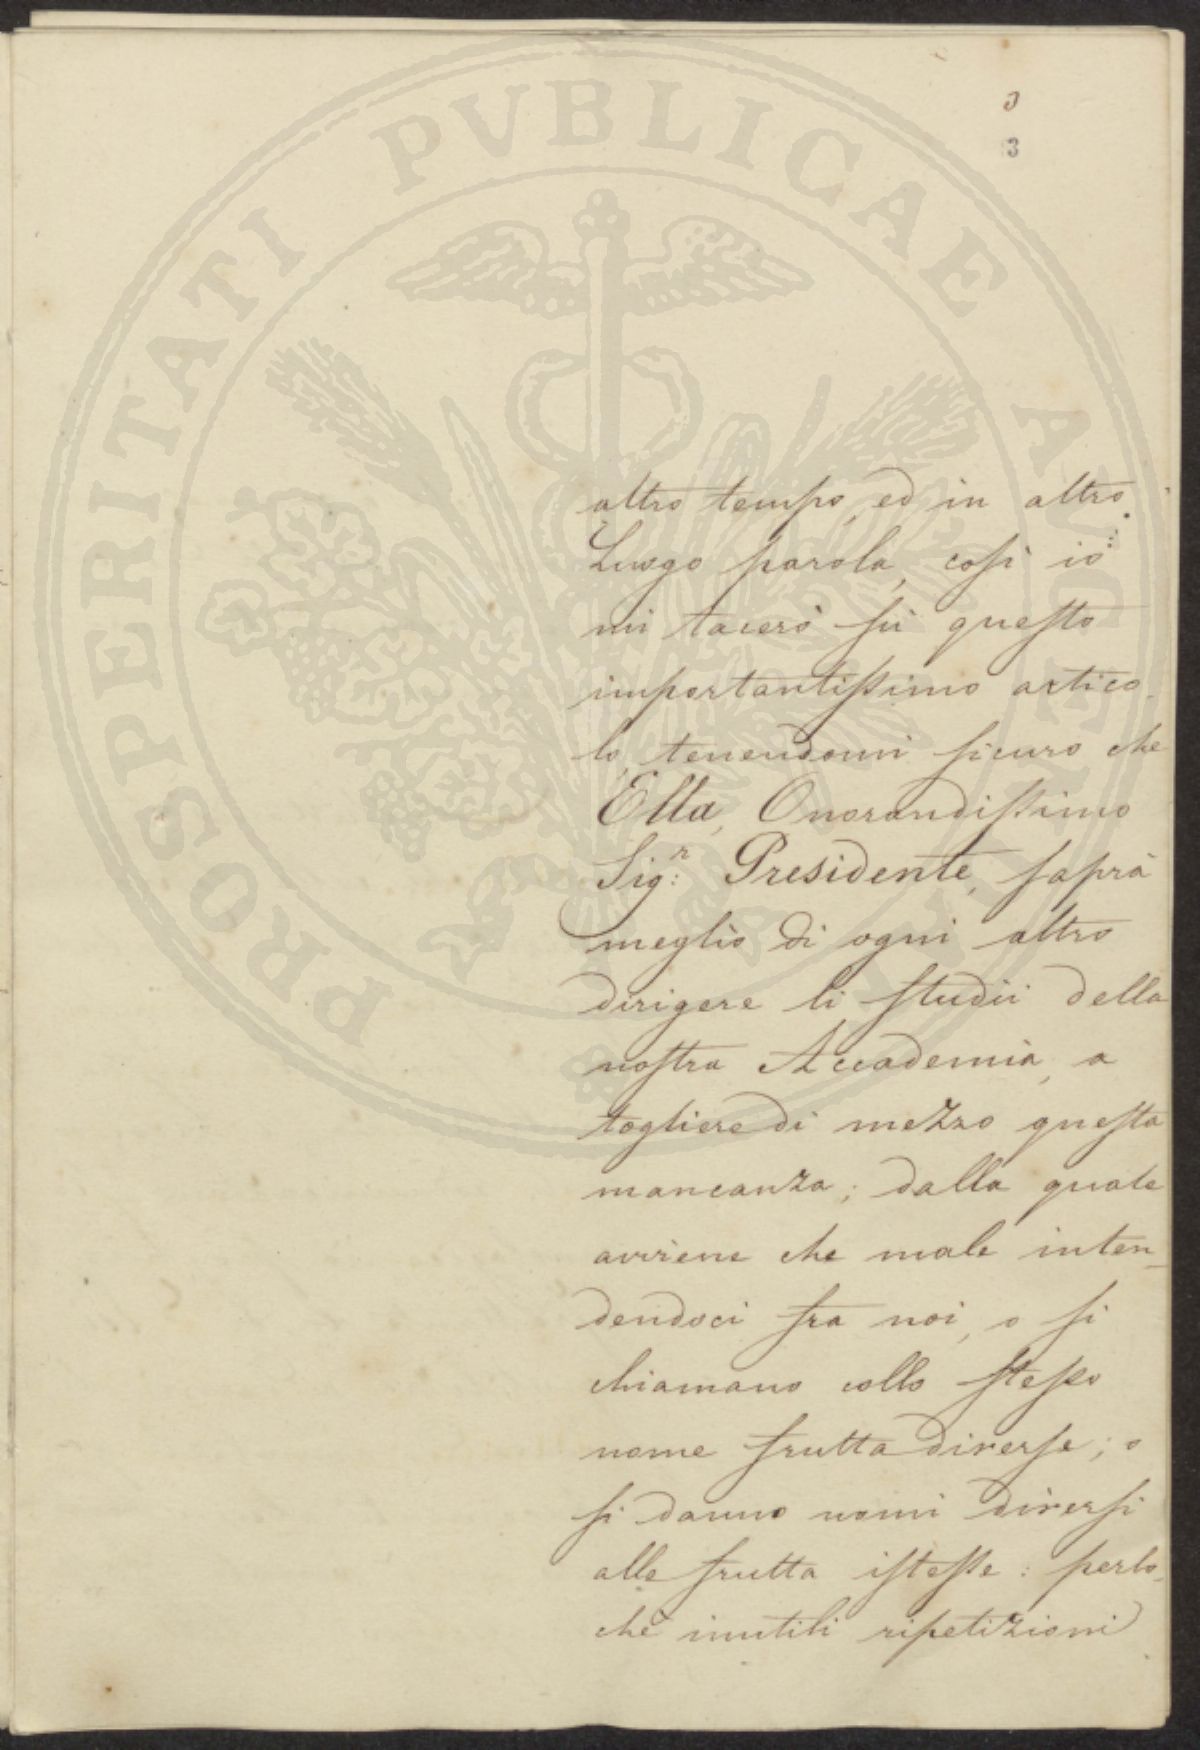 3
3
PROSPERITATI PVBLICAE AVGENDAE
altro tempo, ed in altro
Luogo parola, così io
mi tacerò sù questo
importantissimo artico-
lo, tenendomi sicuro che
Ella, Onorandissimo
Sig:r Presidente, saprà
meglio di ogni altro
dirigere li studii della
nostra Accademia, a
togliere di mezzo questa
mancanza; dalla quale
avviene che male inten-
dendoci fra noi, o si
chiamano collo stesso
nome frutta diverse; o
si danno nomi diversi
alle frutta istesse: perlo-
chè inutili ripetizioni